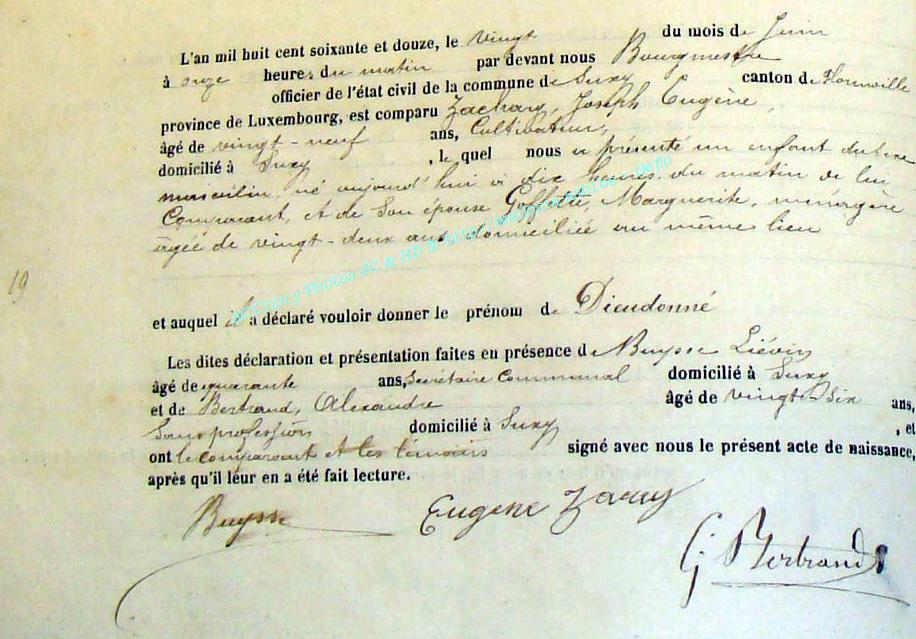 L'an mil huit cent soixante et douze, le vingt du mois de Juin
à onze heures du matin par devant nous Bourgmestre
officier de l'état civil de la commune de Suxy canton de Florenville
province de Luxembourg, est comparu Zachary, Joseph Eugène,
âgé de vingt-neuf ans, Cultivateur,
domicilié à Suxy, le quel nous a présenté un enfant du sexe
masculin, né aujourd'hui à dix heures du matin de lui
Comparant, et de Son épouse Goffette, Marguerite, ménagère
agée de vingt-deux ans domiciliée au même lieu
19
et auquel il a déclaré vouloir donner le prénom de Dieudonné
Les dites déclaration et présentation faites en présence de Buysse Liévin
âgé de quarante ans, Secrétaire Communal domicilié à Suxy
et de Bertrand, Alexandre âgé de vingt-six ans,
Sans profession domicilié à Suxy, et
ont le comparant et les témoins signé avec nous le présent acte de naissance,
après qu'il leur en a été fait lecture.
Buysse Eugene Zacary
G Bertrand